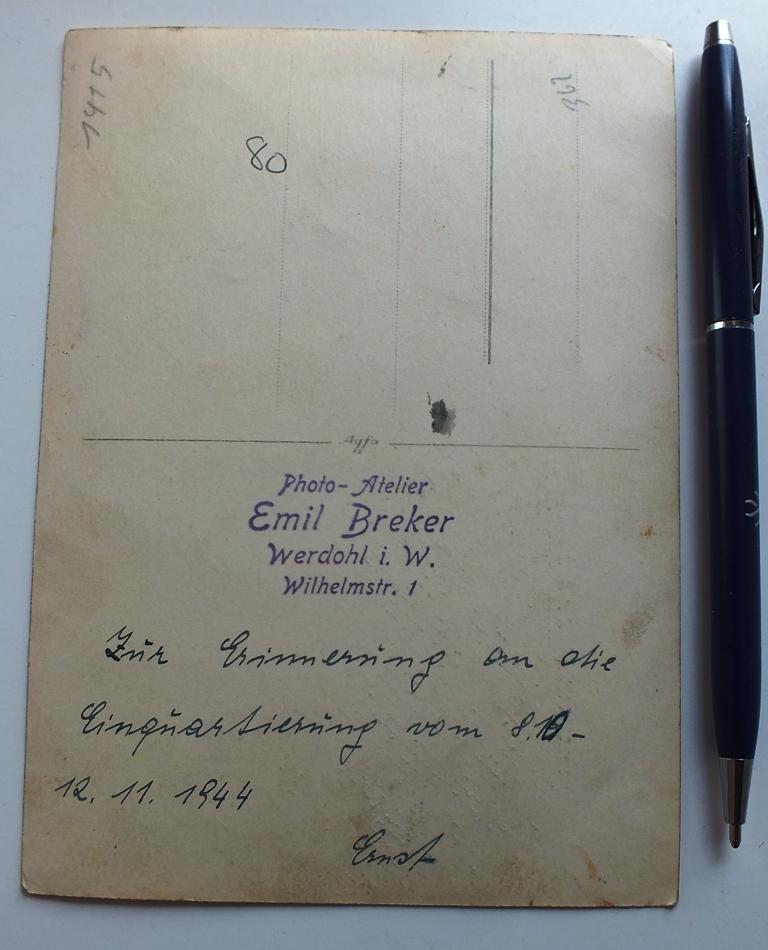 1415
80
362
Agfa
Photo-Atelier
Emil Breker
Werdohl i. W.
Wilhelmstr. 1
Zur Erinnerung an die
Einquartierung vom 8.10-
12. 11. 1944
Ernst